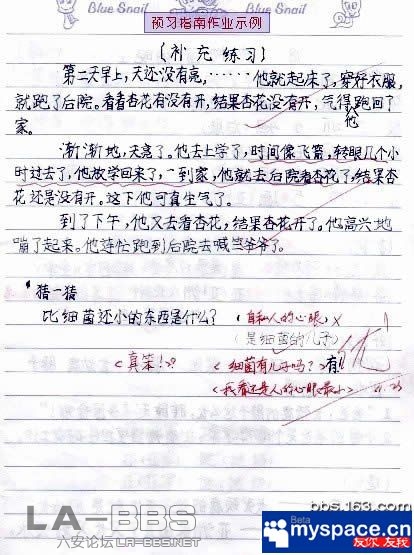 Blue Snail
Blue Snail
预习指南作业示例
(补充练习)
第二天早上,天还没有亮,……他就起床了,穿好衣服,
就跑了后院。看看杏花有没有开,结果杏花没有开,气得跑回了
他
家。
渐渐地,天亮了。他去上学了,时间像飞箭,转眼几个小
时过去了,他放学回来了,一到家,他就去后院看杏花了,结果杏
花还是没有开。这下他可真生气了。
到了下午,他又去看杏花,结果杏花开了。他高兴地
蹦了起来。他连忙跑到后院去喊爷爷了。
"猜一猜
比细菌还小的东西是什么?(自私人的心眼)
(是细菌的儿子)
<真笨!>?
<细菌有儿子吗?>有!
优
<我看还是人的心眼最小>
LA-BBS
六安论坛LA-BBS.NET
bbs.163.com
Beta
myspace.cn
友你 友我